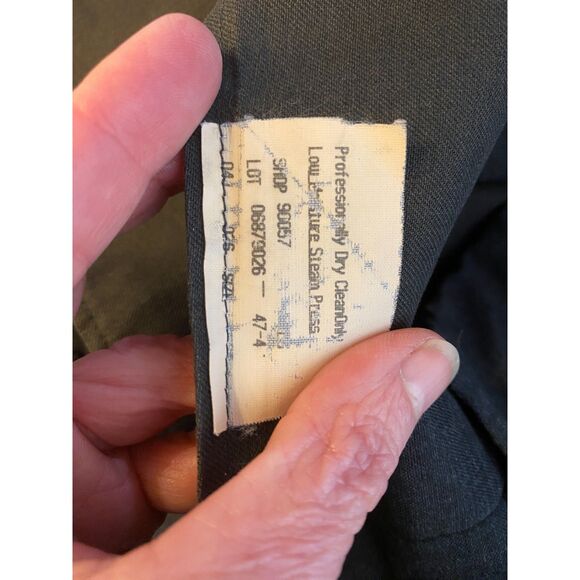 Professionally Dry CleanOnly
Low Moisture Steam Press
SHOP 90057
LOT 06879026 — 47-4